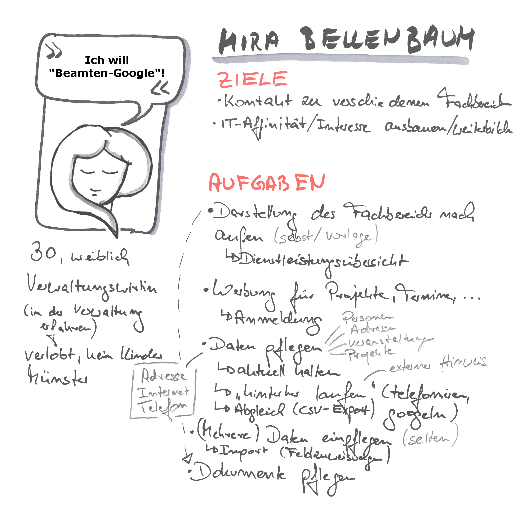 MIRA BELLENBAUM
Ich will
"Beamten-Google"!
ZIELE
• Kontakt zu verschiedenen Fachbereich
• IT-Affinität/Interesse ausbauen/weiterbild
AUFGABEN
• Darstellung des Fachbereichs nach
außen (selbst/Vorlage)
↳ Dienstleistungsübersicht
• Werbung für Projekte, Termine, ...
↳ Anmeldung
• Daten pflegen
Personen
Adressen
Veranstaltungen
Projekte
↳ aktuell halten
externer Hinweis
↳ „hinterher laufen" (telefonieren,
googeln)
↳ Abgleich (CSV-Export)
• (Mehrere) Daten einpflegen (selten)
↳ Import (Feldzuweisungen)
• Dokumente pflegen
30, weiblich
Verwaltungswirtin
(in der Verwaltung
erfahren)
verlobt, kein Kinder
Münster
Adresse
Internet
Telefon